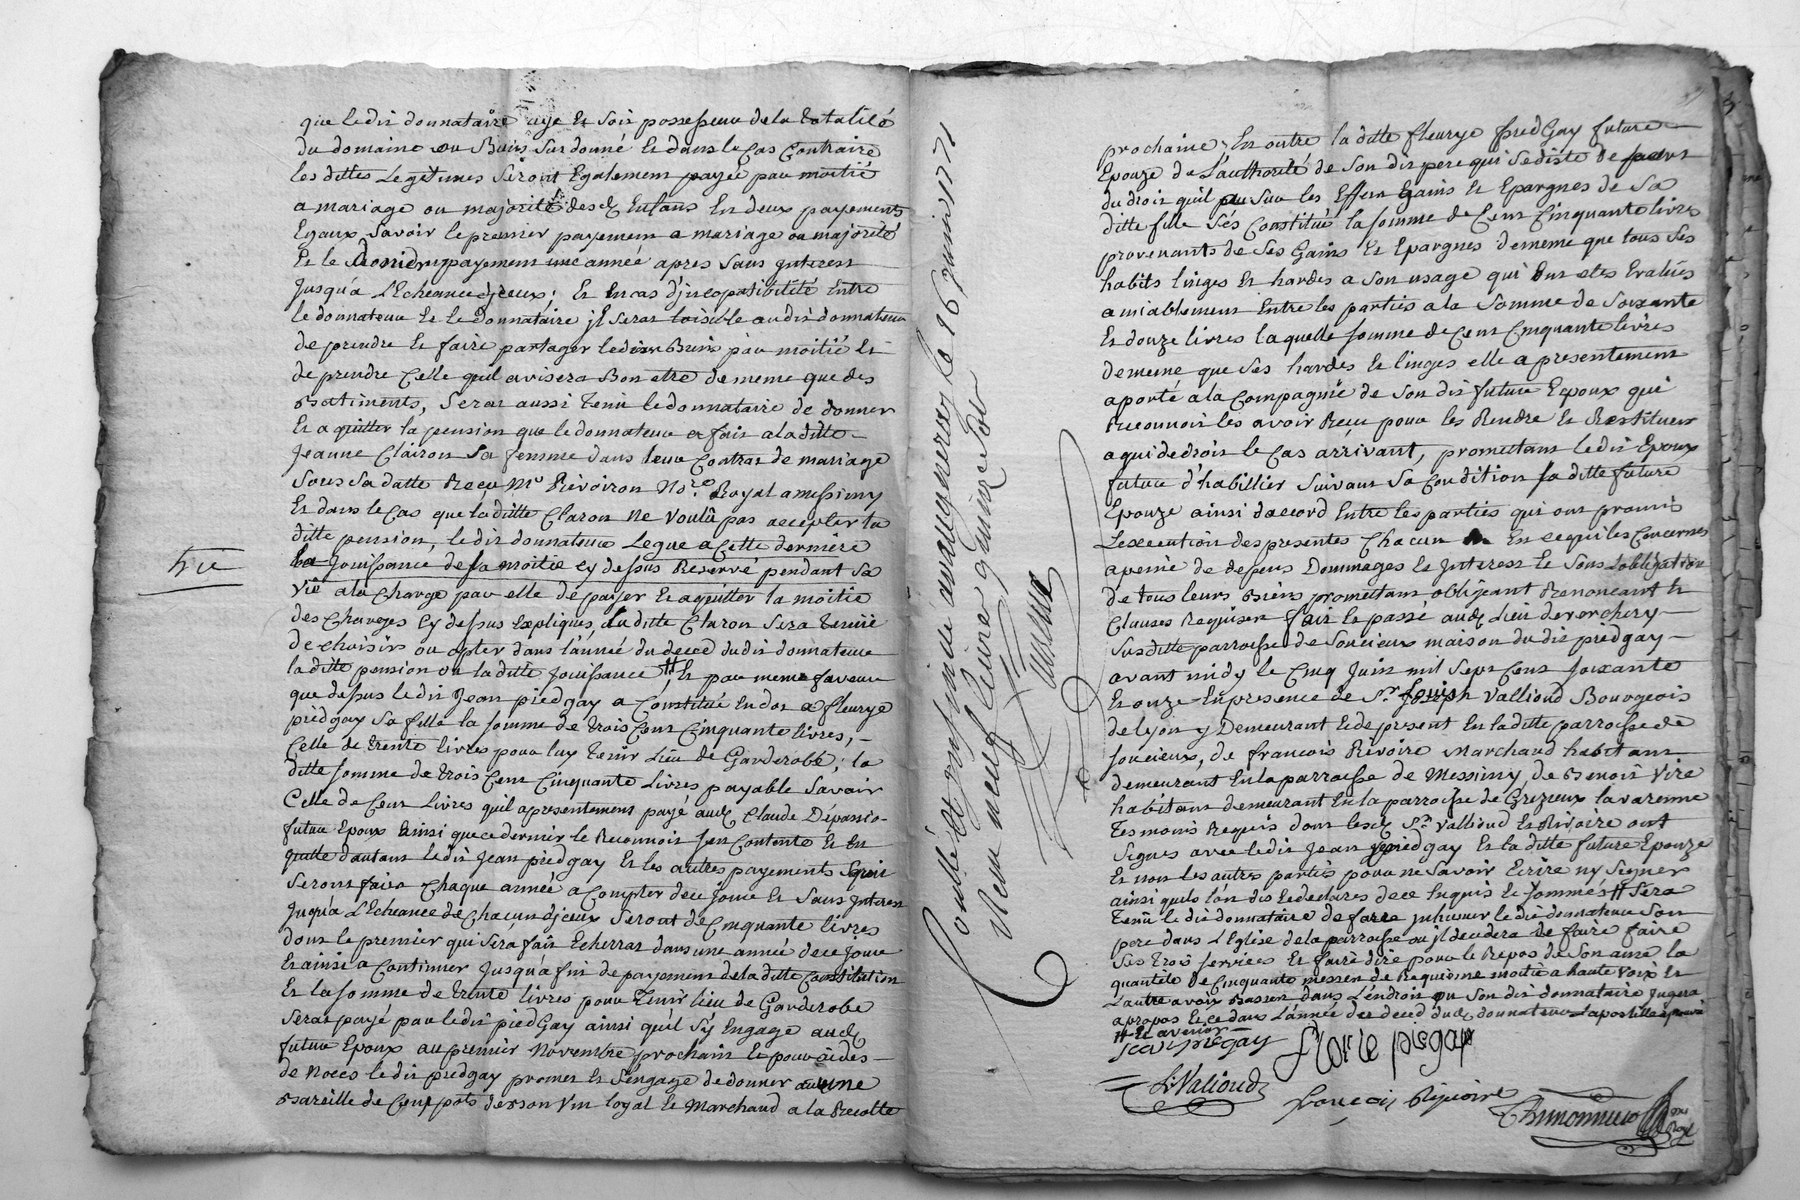 que ledit donnataire aye et soit possesseur de la totalité
du domaine ou Biens sus donné et dans le cas Contraire
les dittes Légitimes seront Egalement payée par moitié
a mariage ou majorité desd Enfans En deux payements
Egaux savoir le premier payement a mariage ou majorité
Et le payement une année apres sans Interest
jusqu'a L'Echeance d'jceux; Et En cas d'jncopatibilité Entre
le donnateur Et le donnataire jl seras loisible au dit donnateur
de prendre Et faire partager lesdits Biens par moitié Et
de prendre Celle quil avisera Bon etre de meme que des
Batiments, seras aussi tenu le donnataire de donner
Et aquitter la pension que le donnateur a fait a la ditte
Jeanne Clairon sa femme dans leur Contrat de mariage
sous sa datte Reçu Mr Rivoiron No.re Royal a messimy
Et dans le Cas que la ditte Claron ne voulû pas accepter la
ditte pension, le dit donnateur Legue a Cette derniére
la Jouissance de sa moitie cy dessus Reservé pendant sa
vie
vie a la Charge par elle de payer Et aquitter la moitie
des Charges cy dessus Expliques, la ditte Claron sera tenue
de choisir ou opter dans l'année du decé du dit donnateur
la ditte pension ou la ditte Jouissance # Et par meme faveur
que dessus le dit Jean piedgay a Constitué En dot a fleurye
piedgay sa fille la somme de trois Cent Cinquante livres,
Celle de trente livres pour luy tenir Lieu de Garderobe; la
ditte somme de trois Cent Cinquante Livres payable savoir
Celle de Cent Livres quil a presentement payé aud Claude
futur Epoux Ainsi que ce dernier le Reconnoit s'en Contente Et En
quitte d'autant ledit Jean piedgay Et les autres payements
seront faits Chaque année a Compter de ce jour Et sans Interest
jusqu'a L'Echeance de Chacun d'jceux seront de Cinquante livres
dont le premier qui sera fait Echerras dans une année de ce jour
Et ainsi a Continuer jusqu'a fin de payement de la ditte Constitution
Et la somme de trente livres pour tenir lieu de Garderobe
seras payé par le dit piedGay ainsi qu'il s'y Engage aud
futur Epoux au premier Novembre prochain Et pour aides
de Noces le dit piedgay promet Et s'engage de donner aud une
Bareille de Cent pots de son vin loyal Et Marchand a la Recolte
Controllé Et insinué le 16 juin 1771
Reçu neuf livres quinze sols
prochaine; En outre la ditte fleurye piedGay future
Epouze de L'authorité de son dit pere qui se diste de
du droit quil sur les Effets Gains Et Epargnes de sa
ditte fille s'és Constitué la somme de Cent Cinquante livres
provenants de ses Gains Et Epargnes de meme que tous ses
habits linges Et hardes a son usage qui ont etes Evalués
amiablement Entre les parties a la somme de soixante
Et douze livres la quelle somme de Cent Cinquante livres
de meme que ses hardes Et linges elle a presentement
aporté a la Compagnie de son dit futur Epoux qui
reconnoit les avoir Reçu pour les Rendre Et Restituer
a qui de droit le Cas arrivant, promettant le dit Epoux
futur d'habillier suivant sa Condition sa ditte future
Epouze ainsi d'accord Entre les parties qui ont promis
L'execution des presentes Chacun En ce qui les Concernes
a peine de depens Dommages Et Interest Et sous L'obligation
de tous leurs Biens promettant obligeant Renonceant Et
Clauses Requises fait Et passé aud Lieu de verchery
susditte parroisse de soucieux maison du dit piedgay
avant midy le Cinq Juin mil sept Cent soixante
Et onze En presence de Sr Joseph Vallioud Bourgeois
de lyon y Demeurant Et de present En la ditte parroisse de
soucieux, de françois Rivoire Marchand habitant
demeurant En la parroisse de Messimy, de Benoit vire
habitant demeurant En la parroisse de Grezieux la varenne
tesmoins Requis dont lesd Sr. Vallioud Et Rivoire ont
signes avec le dit Jean piedgay Et la ditte future Epouze
Et non les autres parties pour ne savoir Ecrire ny signer
ainsi quils l'ont dit Et declares de ce Enquis Et sommés # sera
tenû le dit donnataire de faire jnhumer le dit donnateur son
pere dans L'Eglise de la parroisse ou jl decedera de faire faire
ses trois services Et faire dire pour le Repos de son ame la
quantité de Cinquante messes de Requiême moitié a haute voix Et
L'autre a voix Basses dans L'endroit ou son dit donnataire jugera
apropos Et ce dans L'année du decé dud donnateur Lapostille aprouvé
# Et avenir
Jean piegay
flurie piegay
J. Valioud
françois Rivoire